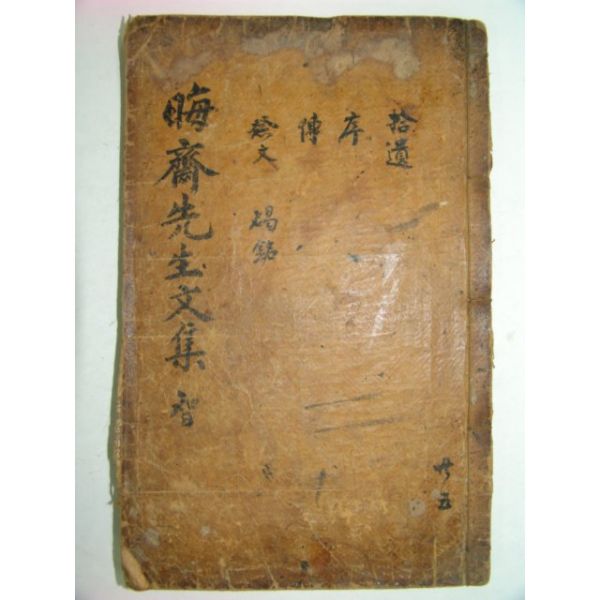 晦齋先生文集 智
拾遺
序
傳
祭文 碣銘
共五